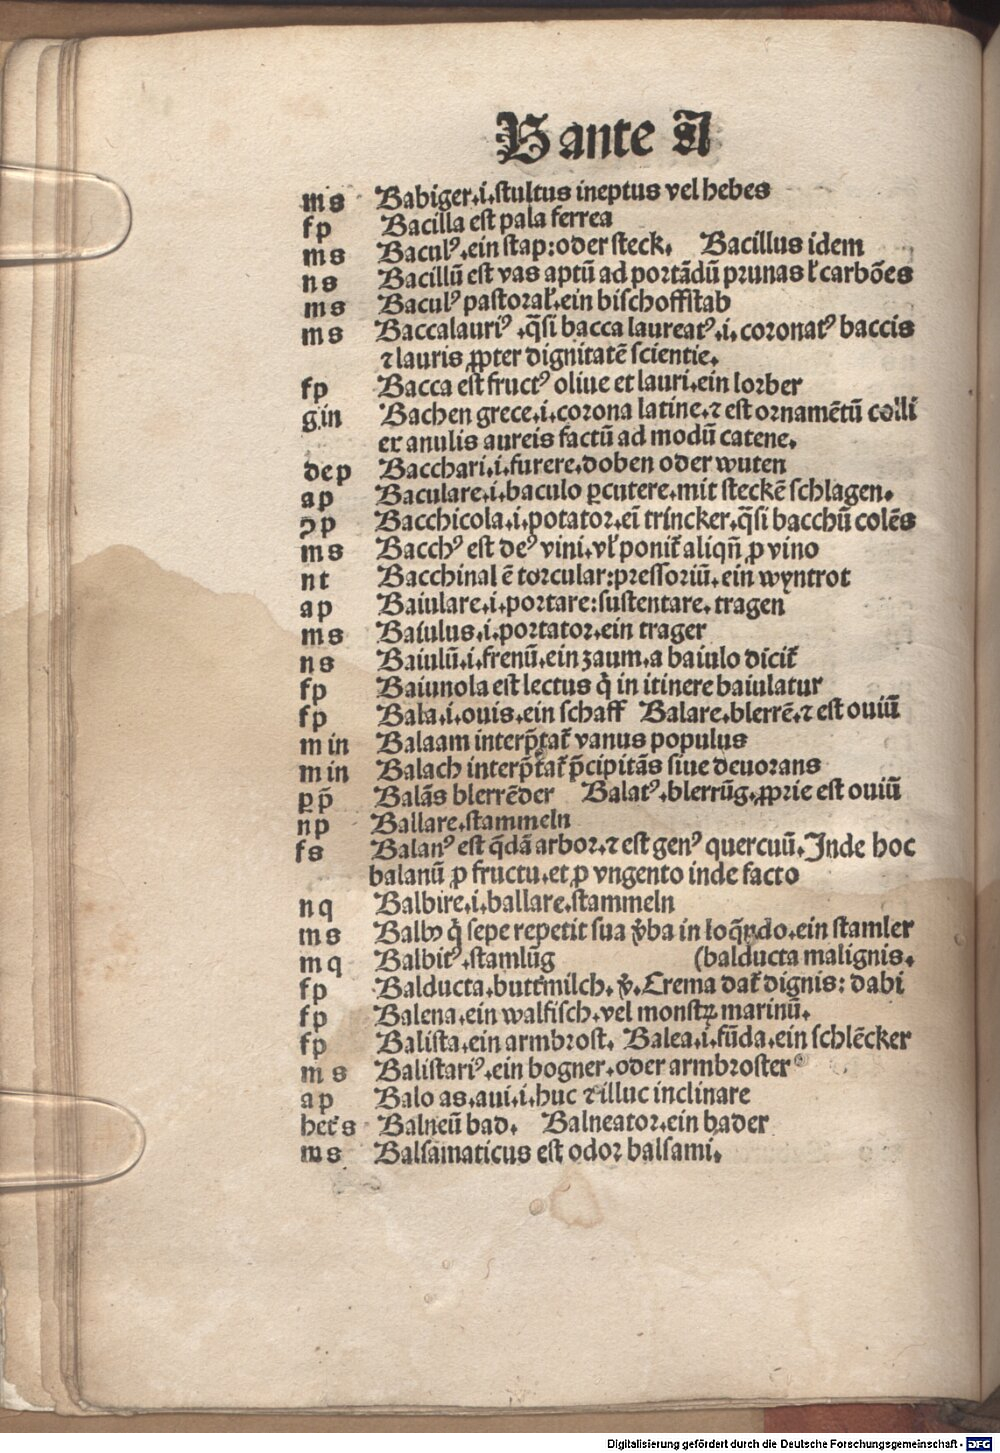 B ante A
m s Babiger.i.stultus ineptus vel hebes
f p Bacilla est pala ferrea
m s Bacul⁹.ein stap:oder steck. Bacillus idem
n s Bacillū est vas aptū ad portādū prunas ł carbōes
m s Bacul⁹ pastoral̕.ein bischoffstab
m s Baccalauri⁹ .q̄si bacca laureat⁹.i.coronat⁹ baccis
⁊ lauris ꝓpter dignitatē scientie.
f p Bacca est fruct⁹ oliue et lauri.ein lorber
g in Bachen grece.i.corona latine.⁊ est ornamētū colli
ex anulis aureis factū ad modū catene.
de p Bacchari.i.furere.doben oder wuten
a p Baculare.i.baculo ꝑcutere.mit steckē schlagen.
ꝯ p Bacchicola.i.potator.eī trincker.q̄si bacchū colēs
m s Bacch⁹ est de⁹ vini.vł ponit̕ aliqn̄ ꝓ vino
n t Bacchinal ē torcular:pressoriū.ein wyntrot
a p Baiulare.i.portare:sustentare.tragen
m s Baiulus.i.portator.ein trager
n s Baiulū.i.frenū.ein zaum.a baiulo dicit̕
f p Baiunola est lectus q̇ in itinere baiulatur
f p Bala.i.ouis.ein schaff Balare.blerrē.⁊ est ouiū
m in Balaam interp̄tat̕ vanus populus
m in Balach interp̄tat̕ p̄cipitās siue deuorans
ꝑ p̄ Balās blerrēder Balat⁹.blerrūg.ꝓprie est ouiū
n p Ballare.stammeln
f s Balan⁹ est q̄dā arbor.⁊ est gen⁹ quercuū.Inde hoc
balanū ꝓ fructu.et ꝓ vngento inde facto
n q Balbire.i.ballare.stammeln
m s Balb⁹ q̇ sepe repetit sua v̇ba in loq̄ndo.ein stamler
m q Balbit⁹.stamlūg (balducta malignis.
f p Balducta.butt̕milch.v̇.Crema dat̕ dignis: dabi
f p Balena.ein walfisch.vel monstꝝ marinū.
f p Balista.ein armbrost. Balea.i.fūda.ein schlēcker
m s Balistari⁹.ein bogner.oder armbroster
a p Balo as.aui.i.huc ⁊ illuc inclinare
het̕ s Balneū bad. Balneator.ein bader
m s Balsamaticus est odor balsami.
Digitalisierung gefördert durch die Deutsche Forschungsgemeinschaft - DFG